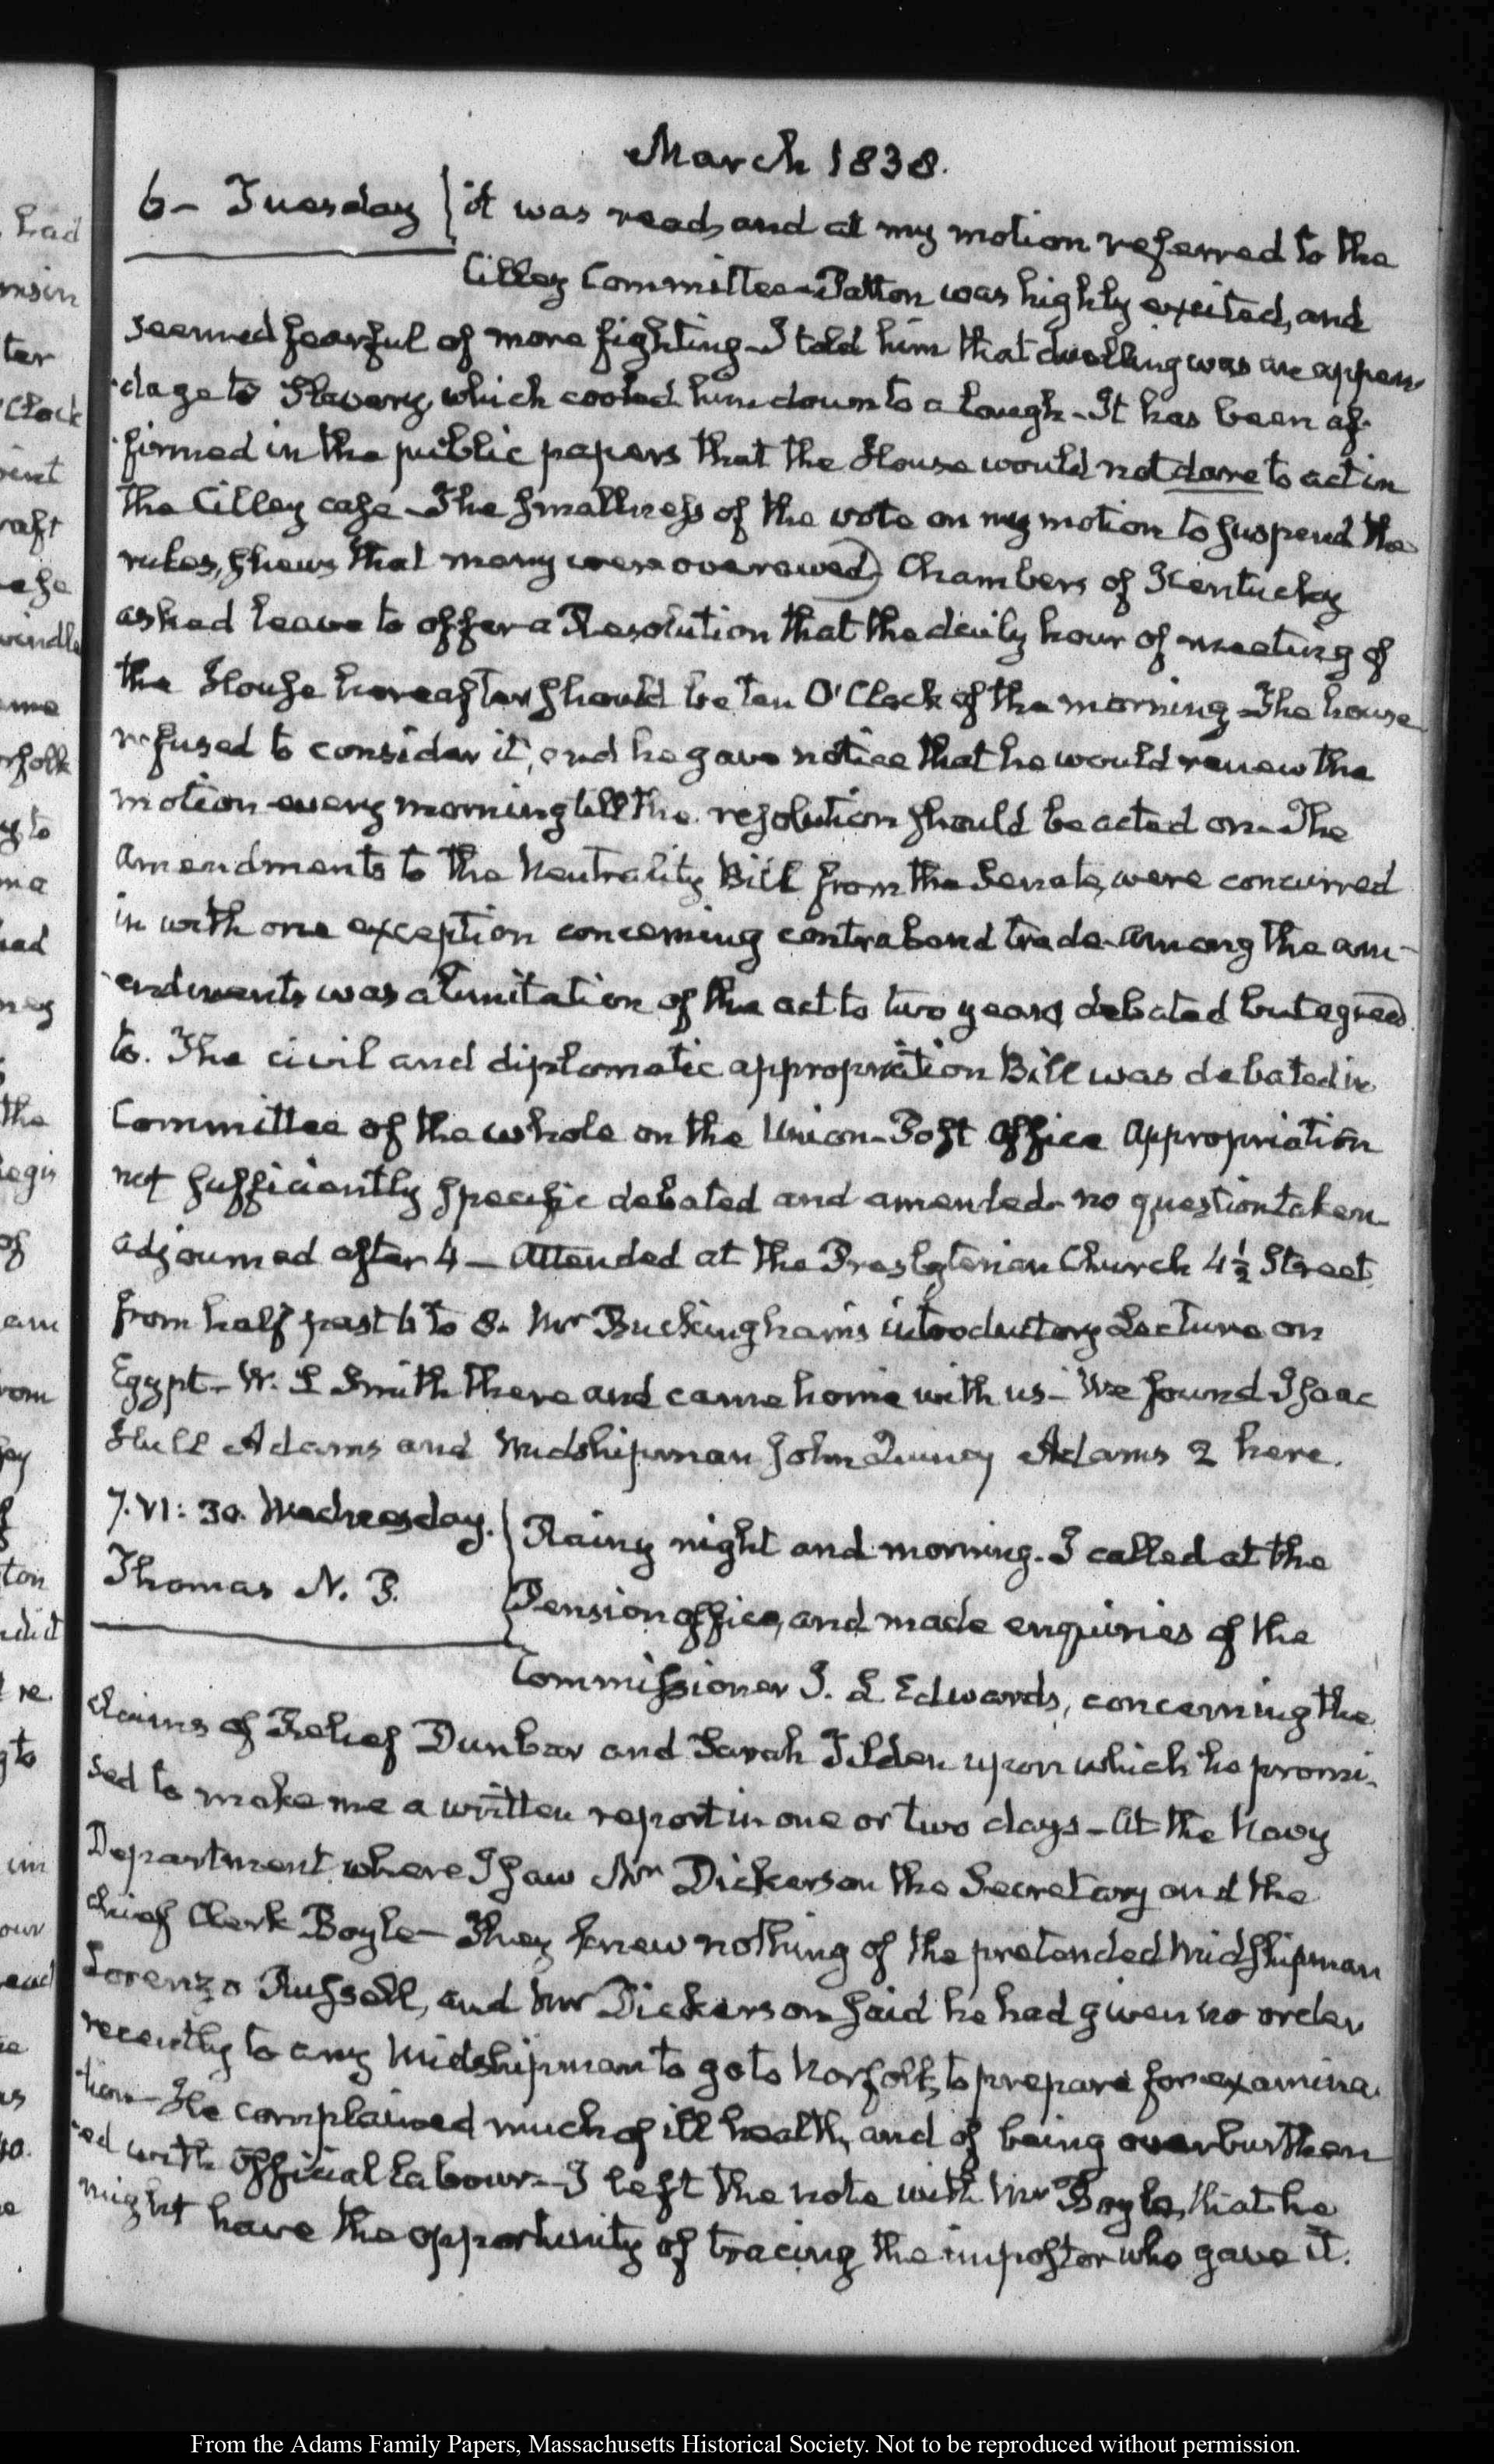 March 1838.
6 – Tuesday } it was read, and at my motion referred to the
Cilley Committee – Patton was highly excited, and
seemed fearful of more fighting – I told him that duelling was an appen-
-dage to Slavery, which cooled him down to a laugh – It has been af-
-firmed in the public papers that the House would not dare to act in
the Cilley case – The smallness of the vote on my motion to suspend the
rules, shews that many were overawed) Chambers of Kentucky
asked leave to offer a Resolution that the daily hour of meeting of
the House hereafter should be ten O'Clock of the morning – The house
refused to consider it, and he gave notice that he would renew the
motion every morning till the resolution should be acted on – The
amendments to the Neutrality Bill from the Senate, were concurred
in with one exception concerning contraband trade – Among the am-
-endments was a limitation of the act to two years, debated but agreed
to. The civil and diplomatic appropriation Bill was debated in
Committee of the whole on the Union – Post Office appropriation
not sufficiently specific debated and amended – no question taken
adjourned after 4 – Attended at the Presbyterian Church 4½ Street,
from half past 6 to 8. Mr Buckingham's introductory Lecture on
Egypt – W. S Smith there and came home with us – We found Isaac
Hull Adams and Midshipman John Quincy Adams 2 here.
7. VI: 30. Wednesday. } Rainy night and morning. I called at the
Thomas N. B. Pension office, and made enquiries of the
Commissioner J. L Edwards, concerning the
claims of Relief Dunbar and Sarah Tilden upon which he promi-
sed to make me a written report in one or two days – At the Navy
Department where I saw Mr Dickerson the Secretary and the
chief Clerk Boyle – They knew nothing of the pretended Midshipman
Lorenzo Russell, and Mr Dickerson said he had given no order
recently to any Midshipman to go to Norfolk, to prepare for examina-
-tion – He complained much of ill health, and of being overburthen
-ed with official labour – I left the note with Mr Boyle, that he
might have the opportunity of tracing the impostor who gave it.
From the Adams Family Papers, Massachusetts Historical Society. Not to be reproduced without permission.